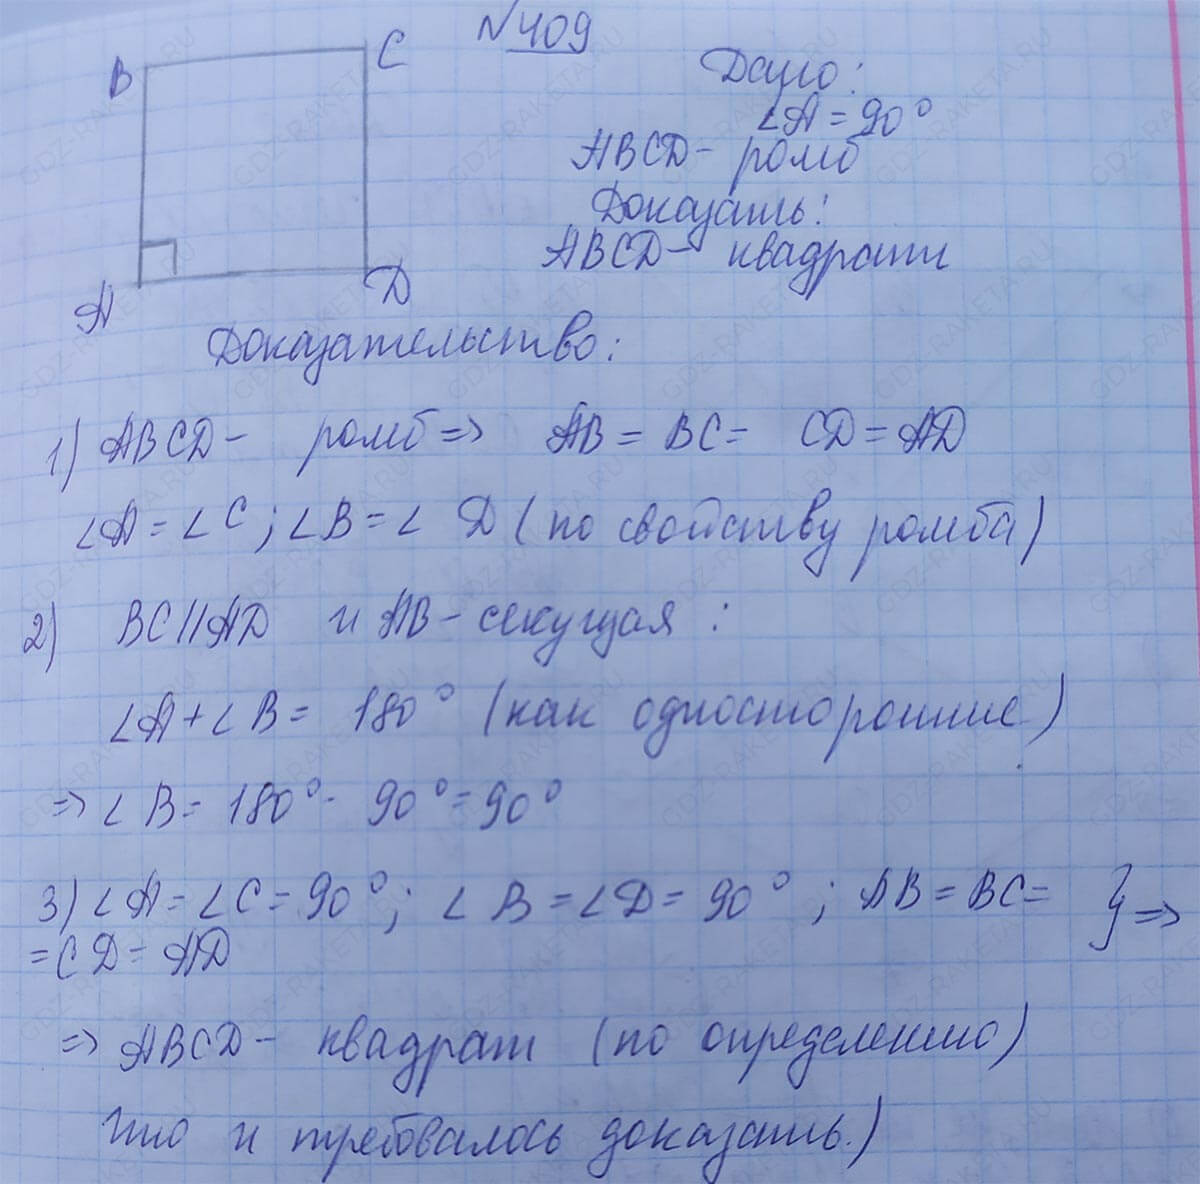 №409
B
C
Дано:
∠A = 90°
ABCD - ромб
Доказать:
ABCD - квадрат
A
D
Доказательство:
1) ABCD - ромб => AB = BC = CD = AD
∠A = ∠C; ∠B = ∠D (по свойству ромба)
2) BC || AD и AB - секущая:
∠A + ∠B = 180° (как односторонние)
=> ∠B = 180° - 90° = 90°
3) ∠A = ∠C = 90°; ∠B = ∠D = 90°; AB = BC = } =>
= CD = AD
=> ABCD - квадрат (по определению)
Что и требовалось доказать.)
GDZ-RAKETA.RU